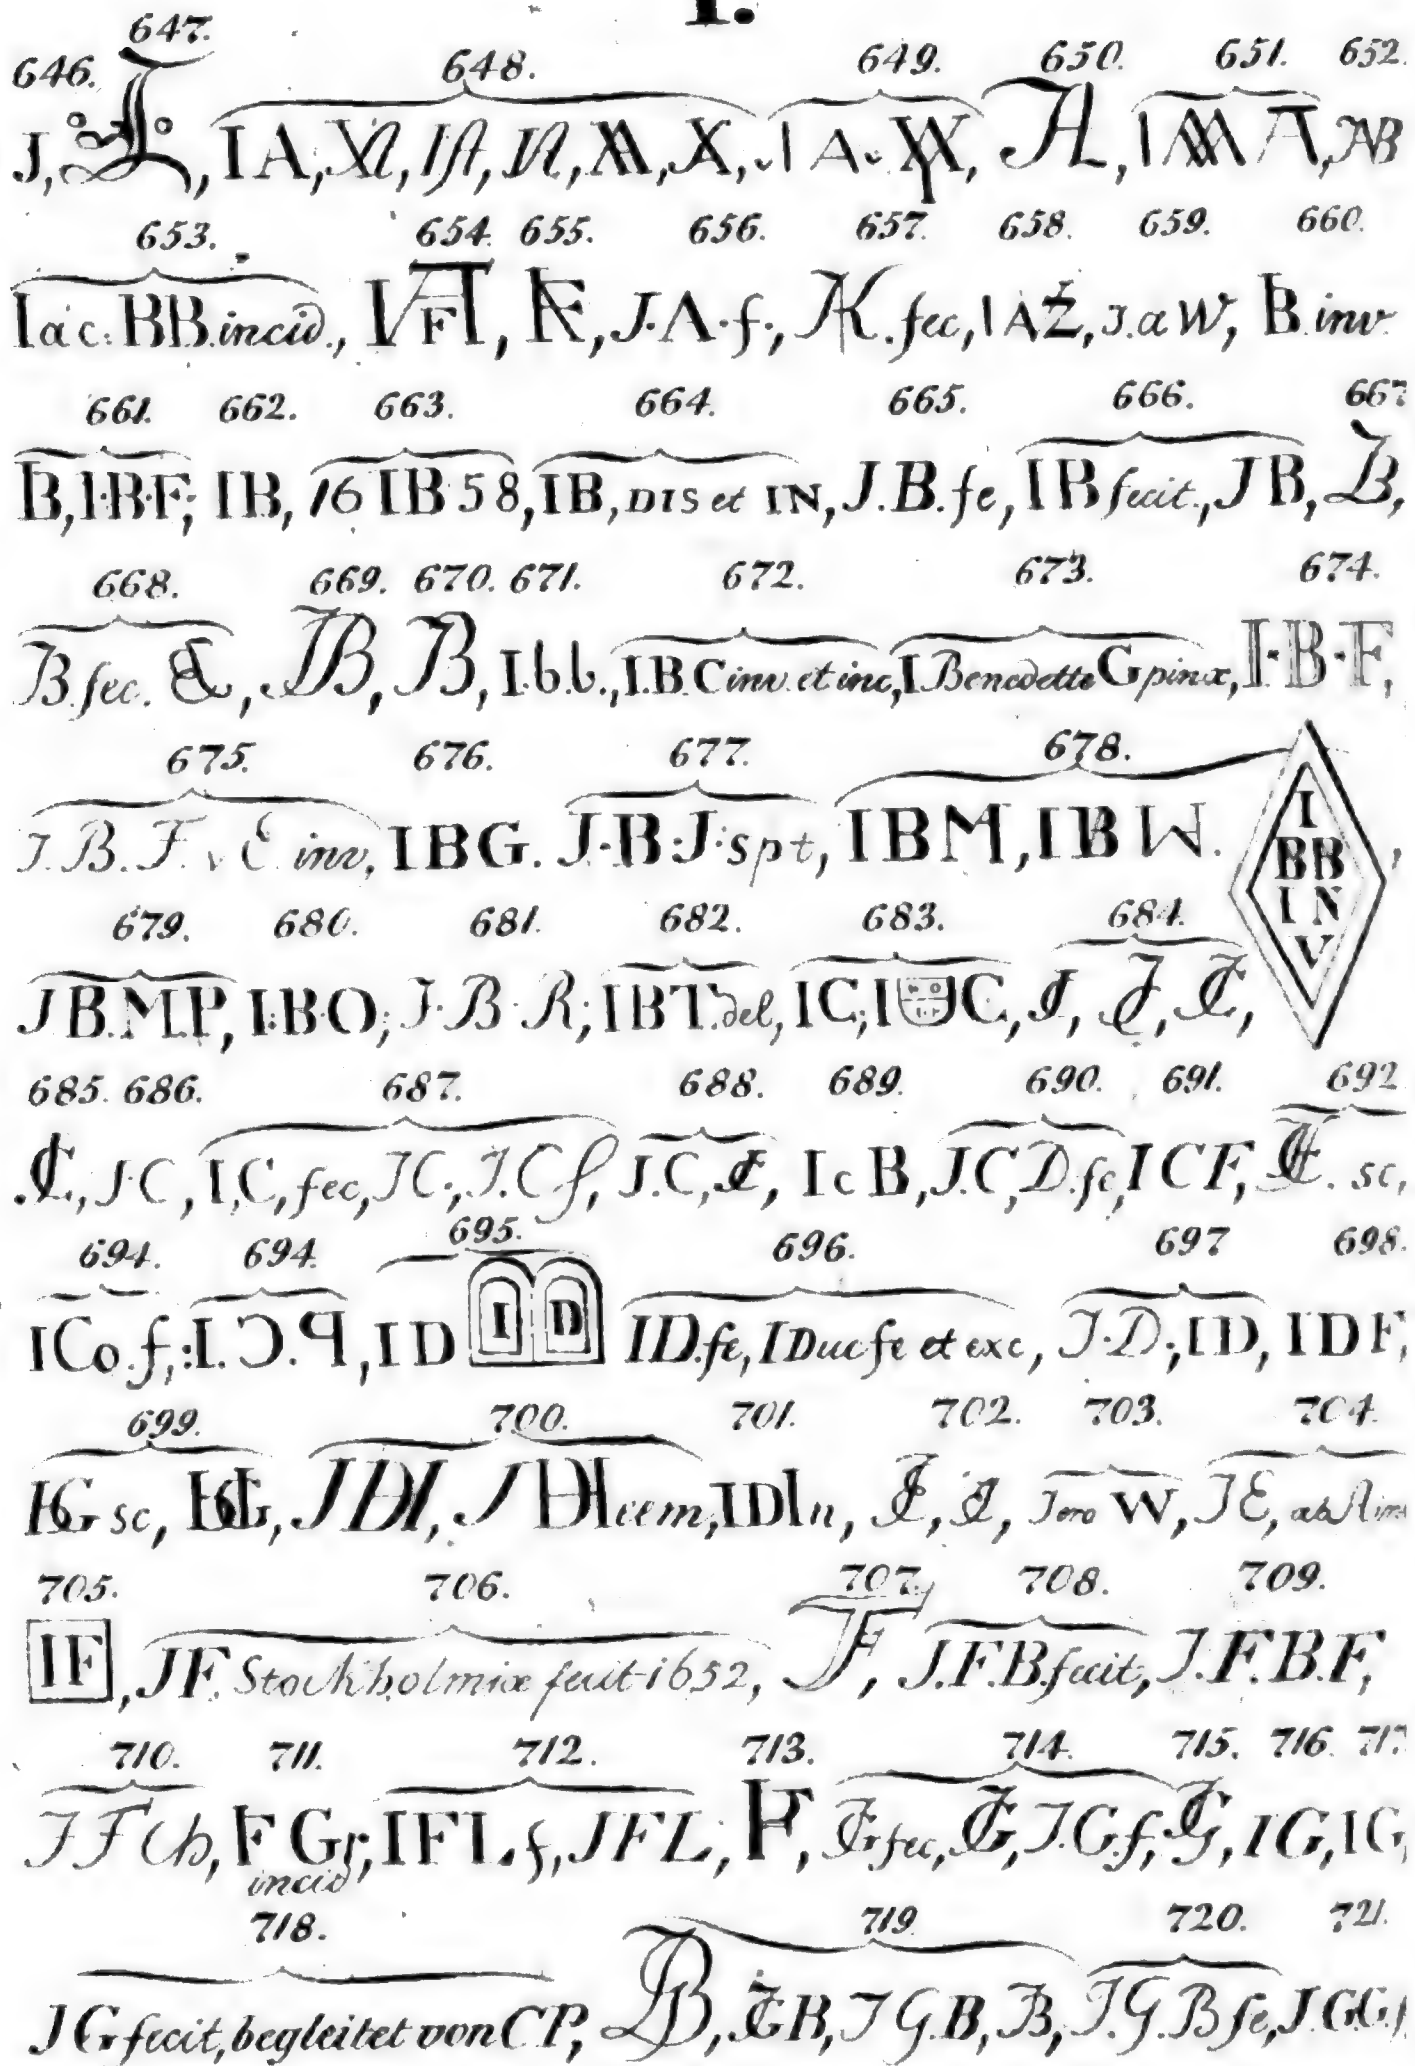 I.
647.
646. 648. 649. 650. 651. 652.
J, IA, A, AB
653. 654. 655. 656. 657. 658. 659. 660.
Iac: BB. incid., J.A.f., AK. fec, IAZ, J.aW, B. inv.
661. 662. 663. 664. 665. 666. 667
B, I·B·F; IB, 16 IB 58, IB, DIS et IN, J.B. fe, IB fecit., JB, B,
668. 669. 670. 671. 672. 673. 674.
B. fec. , JB, B, I.b.b., I.B.C inv. et inc, I Benedette G pinx, I·B·F,
675. 676. 677. 678.
J. B. F. v E. inv, IBG. J·B·J·spt, IBM, IB W. I BB IN V,
679. 680. 681. 682. 683. 684.
J B.M.P, I:B·O; J·B·R; IBT. del, IC; I C, J, J, JC,
685. 686. 687. 688. 689. 690. 691. 692
C, J·C, I,C, fec, JC., J.C f, J.C, C, IcB, J.C, D. fc, ICF, sc,
694. 694. 695. 696. 697 698.
ICo.f,:I.Ɔ.ꟼ, ID I D ID.fe, IDuc fe et exc, J·D; ID, IDF,
699. 700. 701. 702. 703. 704.
HG sc, HG, JDH, J DH eem, IDIn, Jero W, JE,
705. 706. 707. 708. 709.
IF, JF. Stockholmiæ fecit 1652, JF, J.F.B. fecit, J.F.B.F,
710. 711. 712. 713. 714. 715. 716. 717
JFCh, F Gr, IFL f, JFL, F, G fec, G, J.G.f, G, IG, IG,
incid
718. 719. 720. 721.
JG fecit, begleitet von CP, B, GB, JG.B, B, J.G.B fe, J.GG.